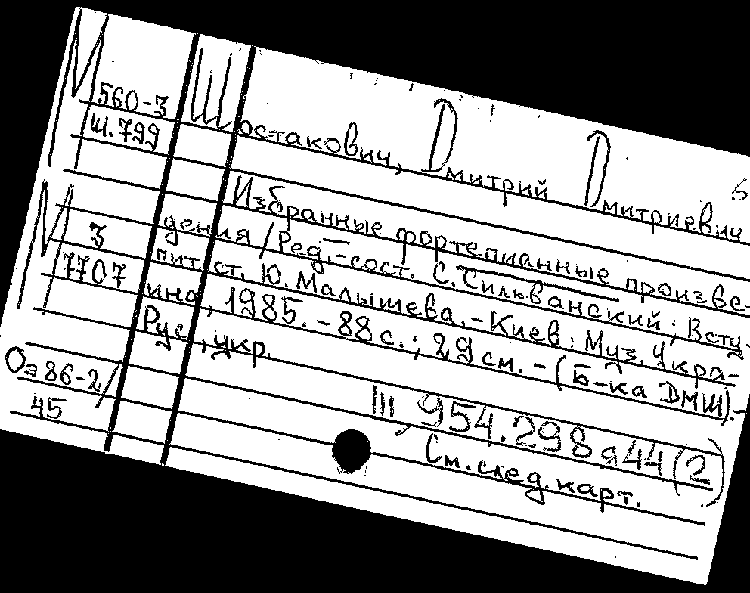 М 560-3
Ш.799
Шостакович, Дмитрий Дмитриевич
Избранные фортепианные произве-
дения / Ред.-сост. С. Сильванский; Всту-
пит. ст. Ю. Малышева. - Киев: Муз. Укра-
ина, 1985. - 88 с.; 29 см. - (Б-ка ДМШ). -
Рус., укр.
М 3
7707
Оэ 86-2/
45
III, 954.298 а 44 (2)
См. след. карт.